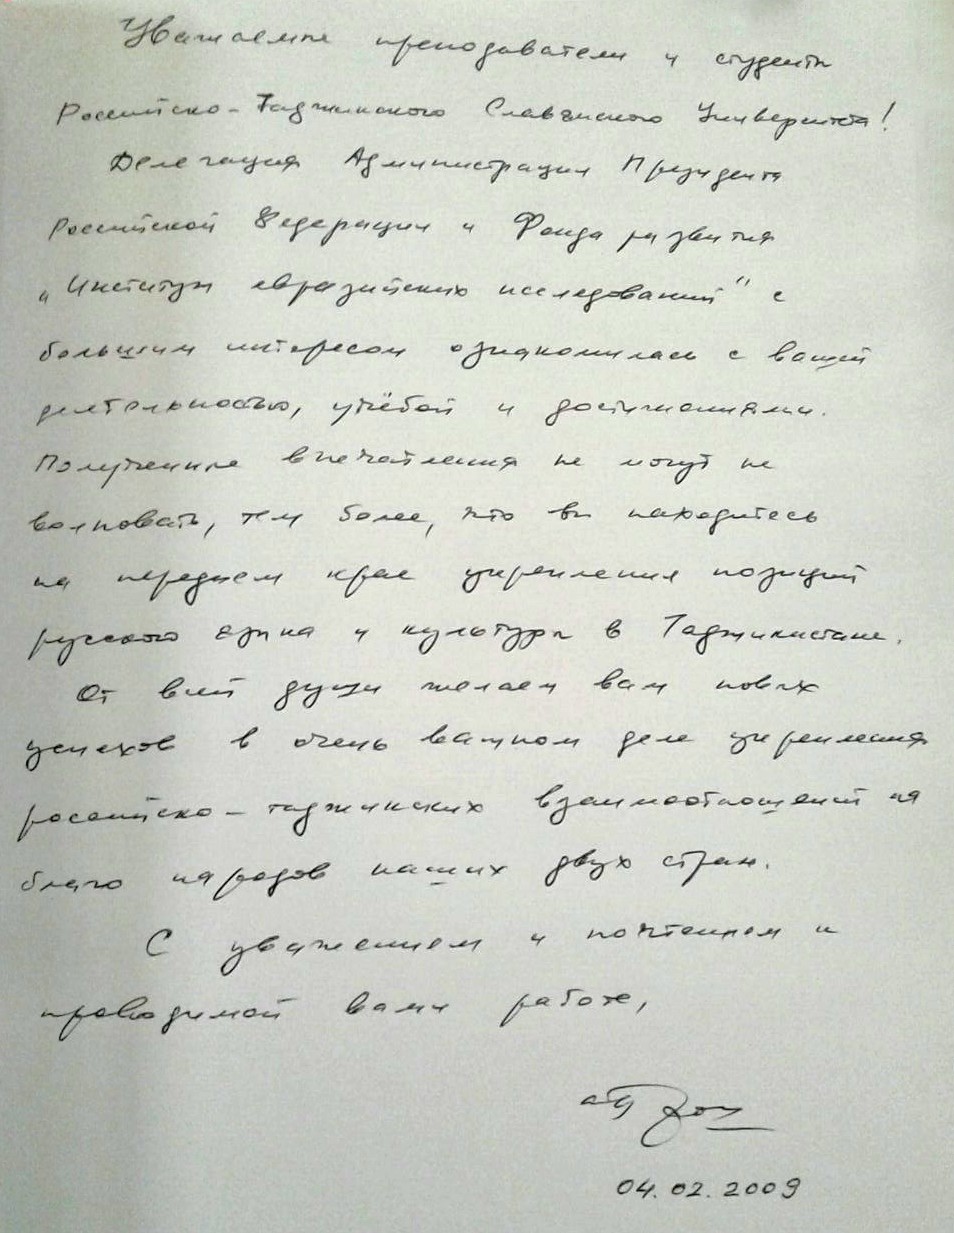 Уважаемые преподаватели и студенты
Российско-Таджикского Славянского Университета!
Делегация Администрации Президента
Российской Федерации и Фонда развития
„Институт евразийских исследований" с
большим интересом ознакомилась с вашей
деятельностью, учёбой и достижениями.
Полученные впечатления не могут не
волновать, тем более, что вы находитесь
на переднем крае укрепления позиций
русского языка и культуры в Таджикистане.
От всей души желаем вам новых
успехов в очень важном деле укрепления
российско-таджикских взаимоотношений на
благо народов наших двух стран.
С уважением и почтением к
проводимой вами работе,
04.02.2009